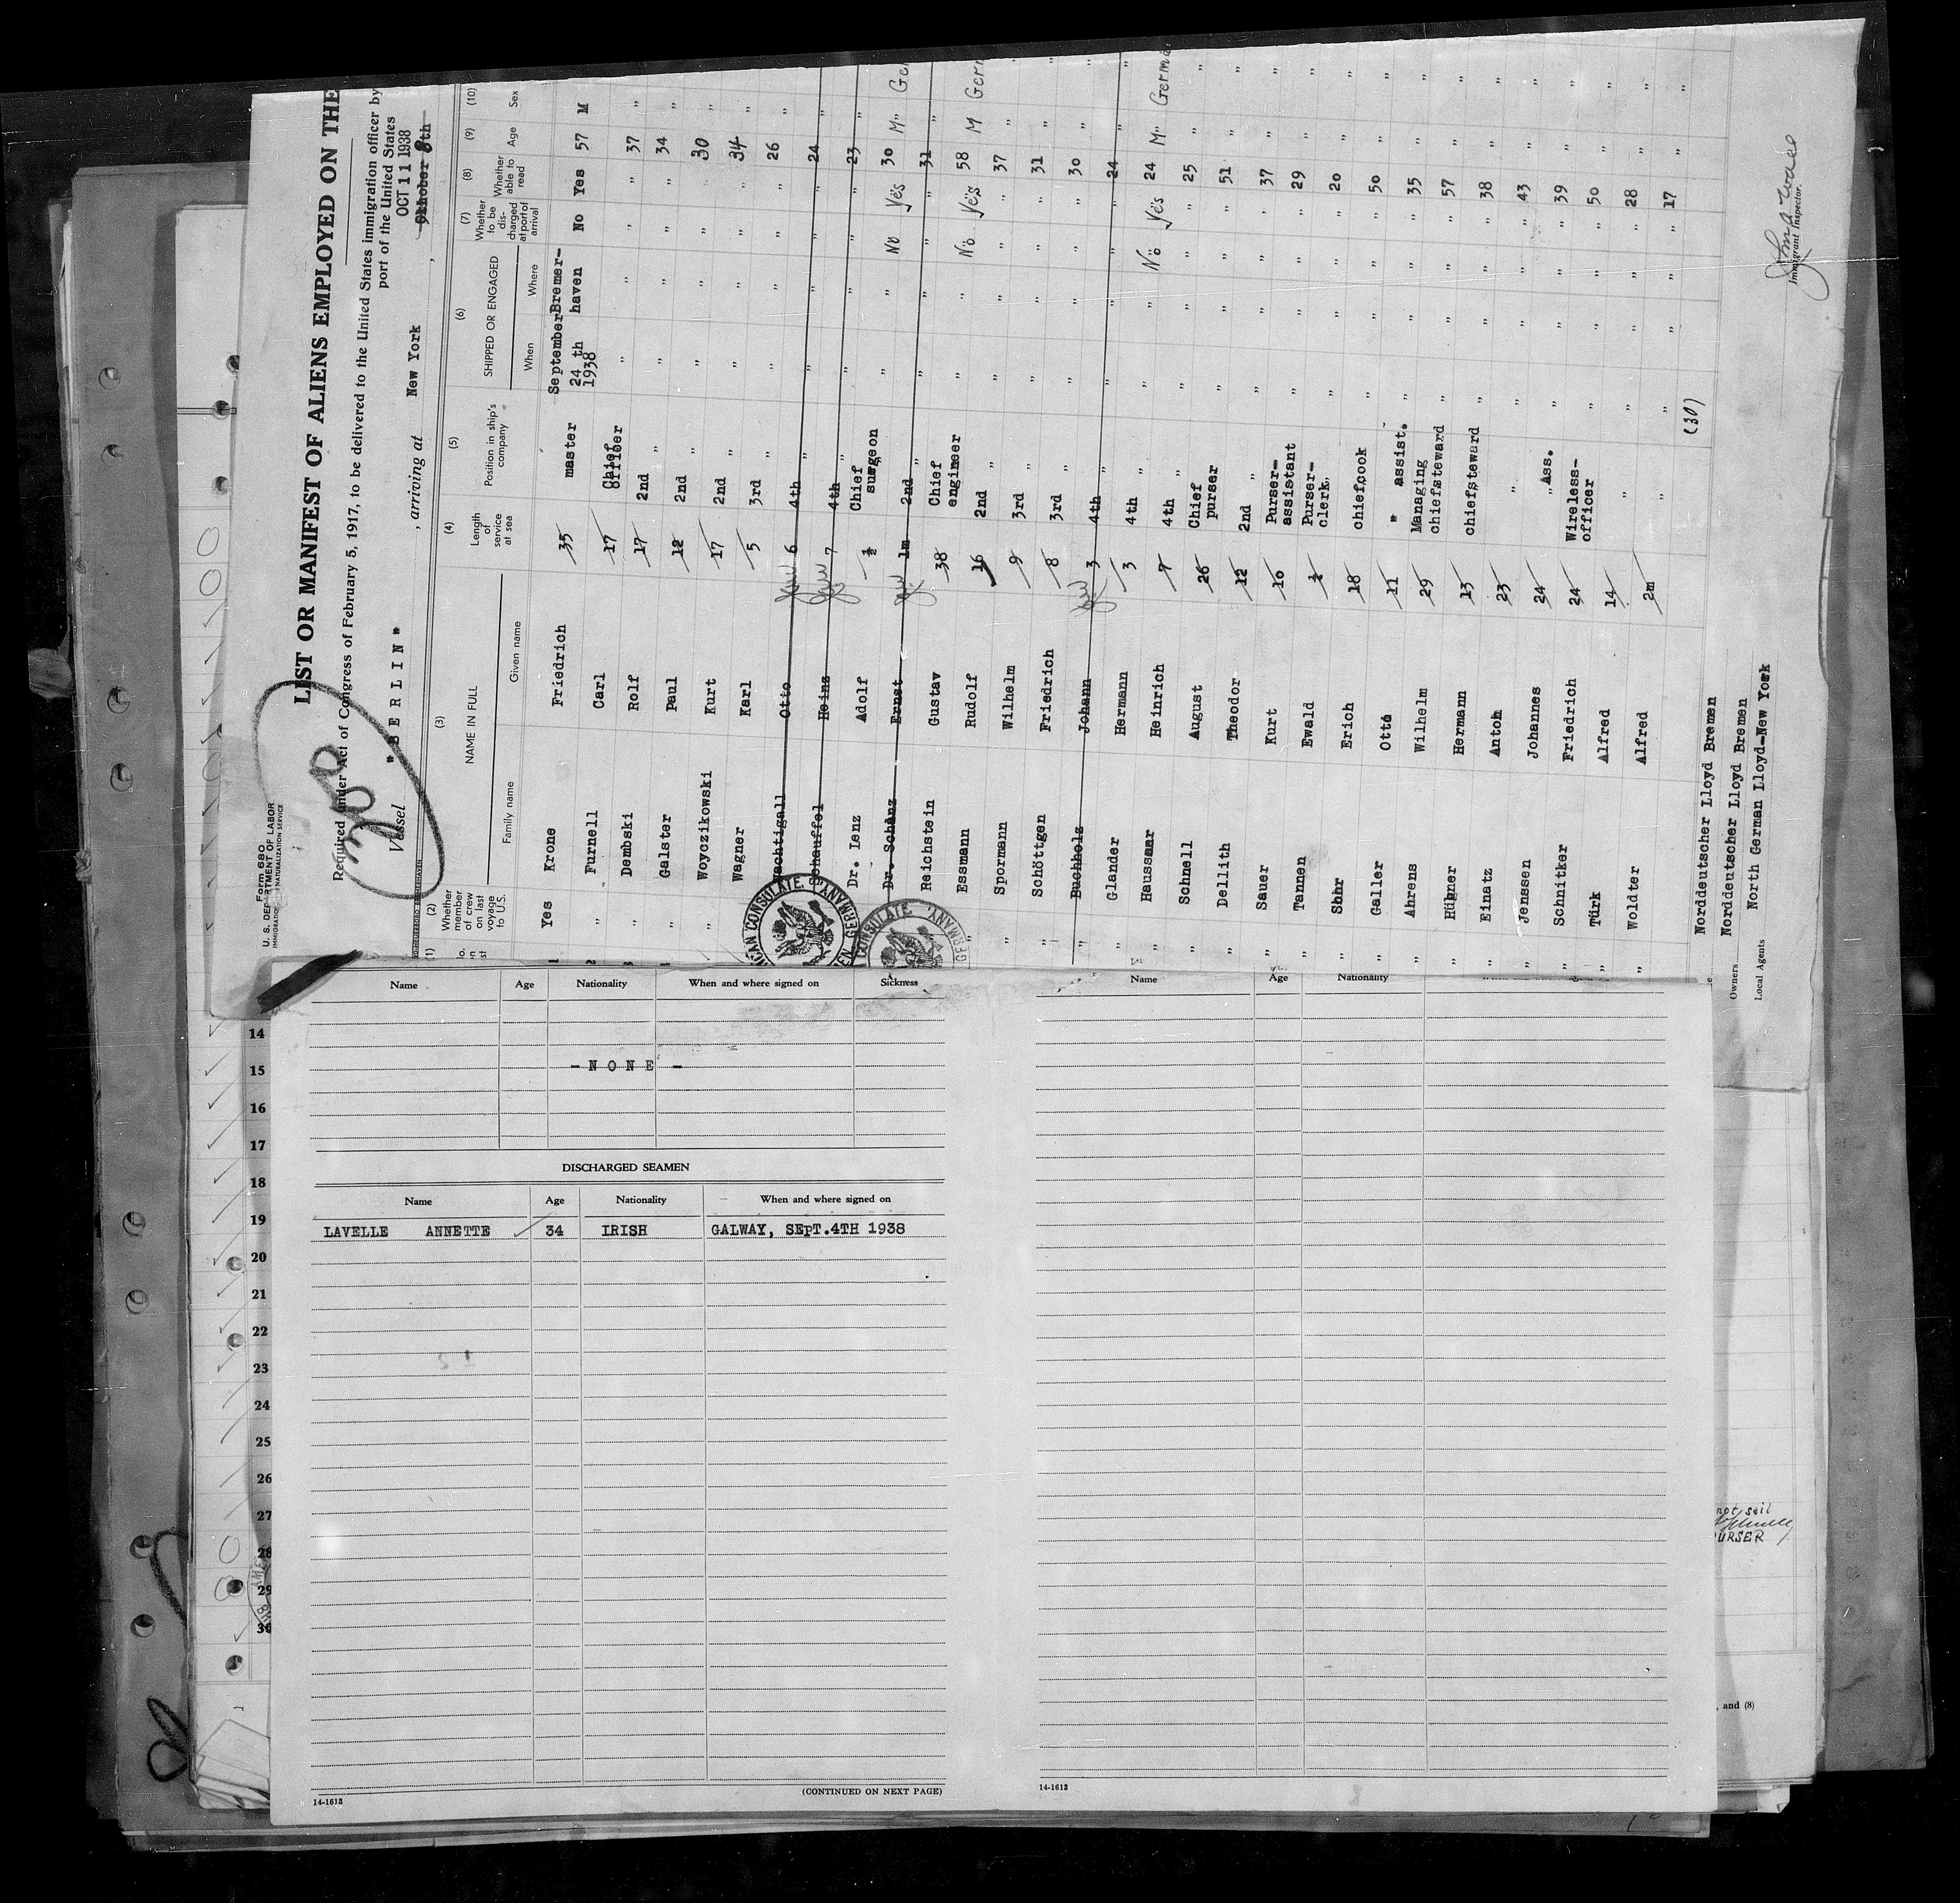 Form 680
U. S. DEPARTMENT OF LABOR
IMMIGRATION NATURALIZATION SERVICE
LIST OR MANIFEST OF ALIENS EMPLOYED ON THE
Required under Act of Congress of February 5, 1917, to be delivered to the United States immigration officer by
port of the United States
Vessel "BERLIN" , arriving at New York , OCT 11 1938
October 8th
(1) (2) (3) (4) (5) (6) (7) (8) (9) (10)
Whether member of crew on last voyage to U.S.
NAME IN FULL
Family name Given name
Length of service at sea
Position in ship's company
SHIPPED OR ENGAGED
When Where
Whether to be discharged at port of arrival
Whether able to read
Age Sex
Yes Krone Friedrich 35 master September 24 th 1938 Bremerhaven No Yes 57 M
" Furnell Carl 17 Chief officer " " " " 37 "
" Dembski Rolf 17 2nd " " " " " 34 "
" Galster Paul 12 2nd " " " " " 30 "
" Woyczikowski Kurt 17 2nd " " " " " 34 "
Wagner Karl 5 3rd " " " " " 26 "
Nachtigall Otto 6 4th " " " " " 24 "
Schauffel Heinz 7 4th " " " " " 23 "
Dr. Lenz Adolf ½ Chief surgeon " " No Yes 30 M"
Dr. Schänz Ernst 1m 2nd " " " " " 31 "
Reichstein Gustav 38 Chief engineer " " No Yes 58 M
" Essmann Rudolf 16 2nd " " " " " 37 "
" Spormann Wilhelm 9 3rd " " " " " 31 "
" Schöttgen Friedrich 8 3rd " " " " " 30 "
" Buchholz Johann 3 4th " " " " " 24 "
" Glander Hermann 3 4th " " " No Yes 24 M" Germa
" Haussaar Heinrich 7 4th " " " " " 25 "
" Schnell August 26 Chief purser " " " " 51 "
" Dellith Theodor 12 2nd " " " " " 37 "
" Sauer Kurt 10 Purser-assistant " " " " 29 "
" Tannen Ewald ½ Purser-clerk. " " " " 20 "
" Erich 18 chiefcook " " " " 50 "
" Galler Otto 11 " assist. " " " " 35 "
" Ahrens Wilhelm 29 Managing chiefsteward " " " " 57 "
" Hübner Hermann 13 chiefsteward " " " " 38 "
" Einatz Anton 23 " " " " " 43 "
" Jenssen Johannes 24 " Ass. " " " " 39 "
" Schnitker Friedrich 24 Wireless-officer " " " " 50 "
" Türk Alfred 14 " " " " " 28 "
" Woldter Alfred 2m " " " " " 17 "
(30)
Norddeutscher Lloyd Bremen
Owners Norddeutscher Lloyd Bremen
Local Agents North German Lloyd-New York
Immigrant Inspector.
CONSULATE GERMANY
CONSULATE GERMANY
Name Age Nationality When and where signed on Sickness
- N O N E -
DISCHARGED SEAMEN
Name Age Nationality When and where signed on
LAVELLE ANNETTE 34 IRISH GALWAY, SEpT.4TH 1938
(CONTINUED ON NEXT PAGE)
14-1613
Name Age Nationality
14-1613
14
15
16
17
18
19
20
21
22
23
24
25
26
27
28
29
30
not sail
PURSER
, and (8)